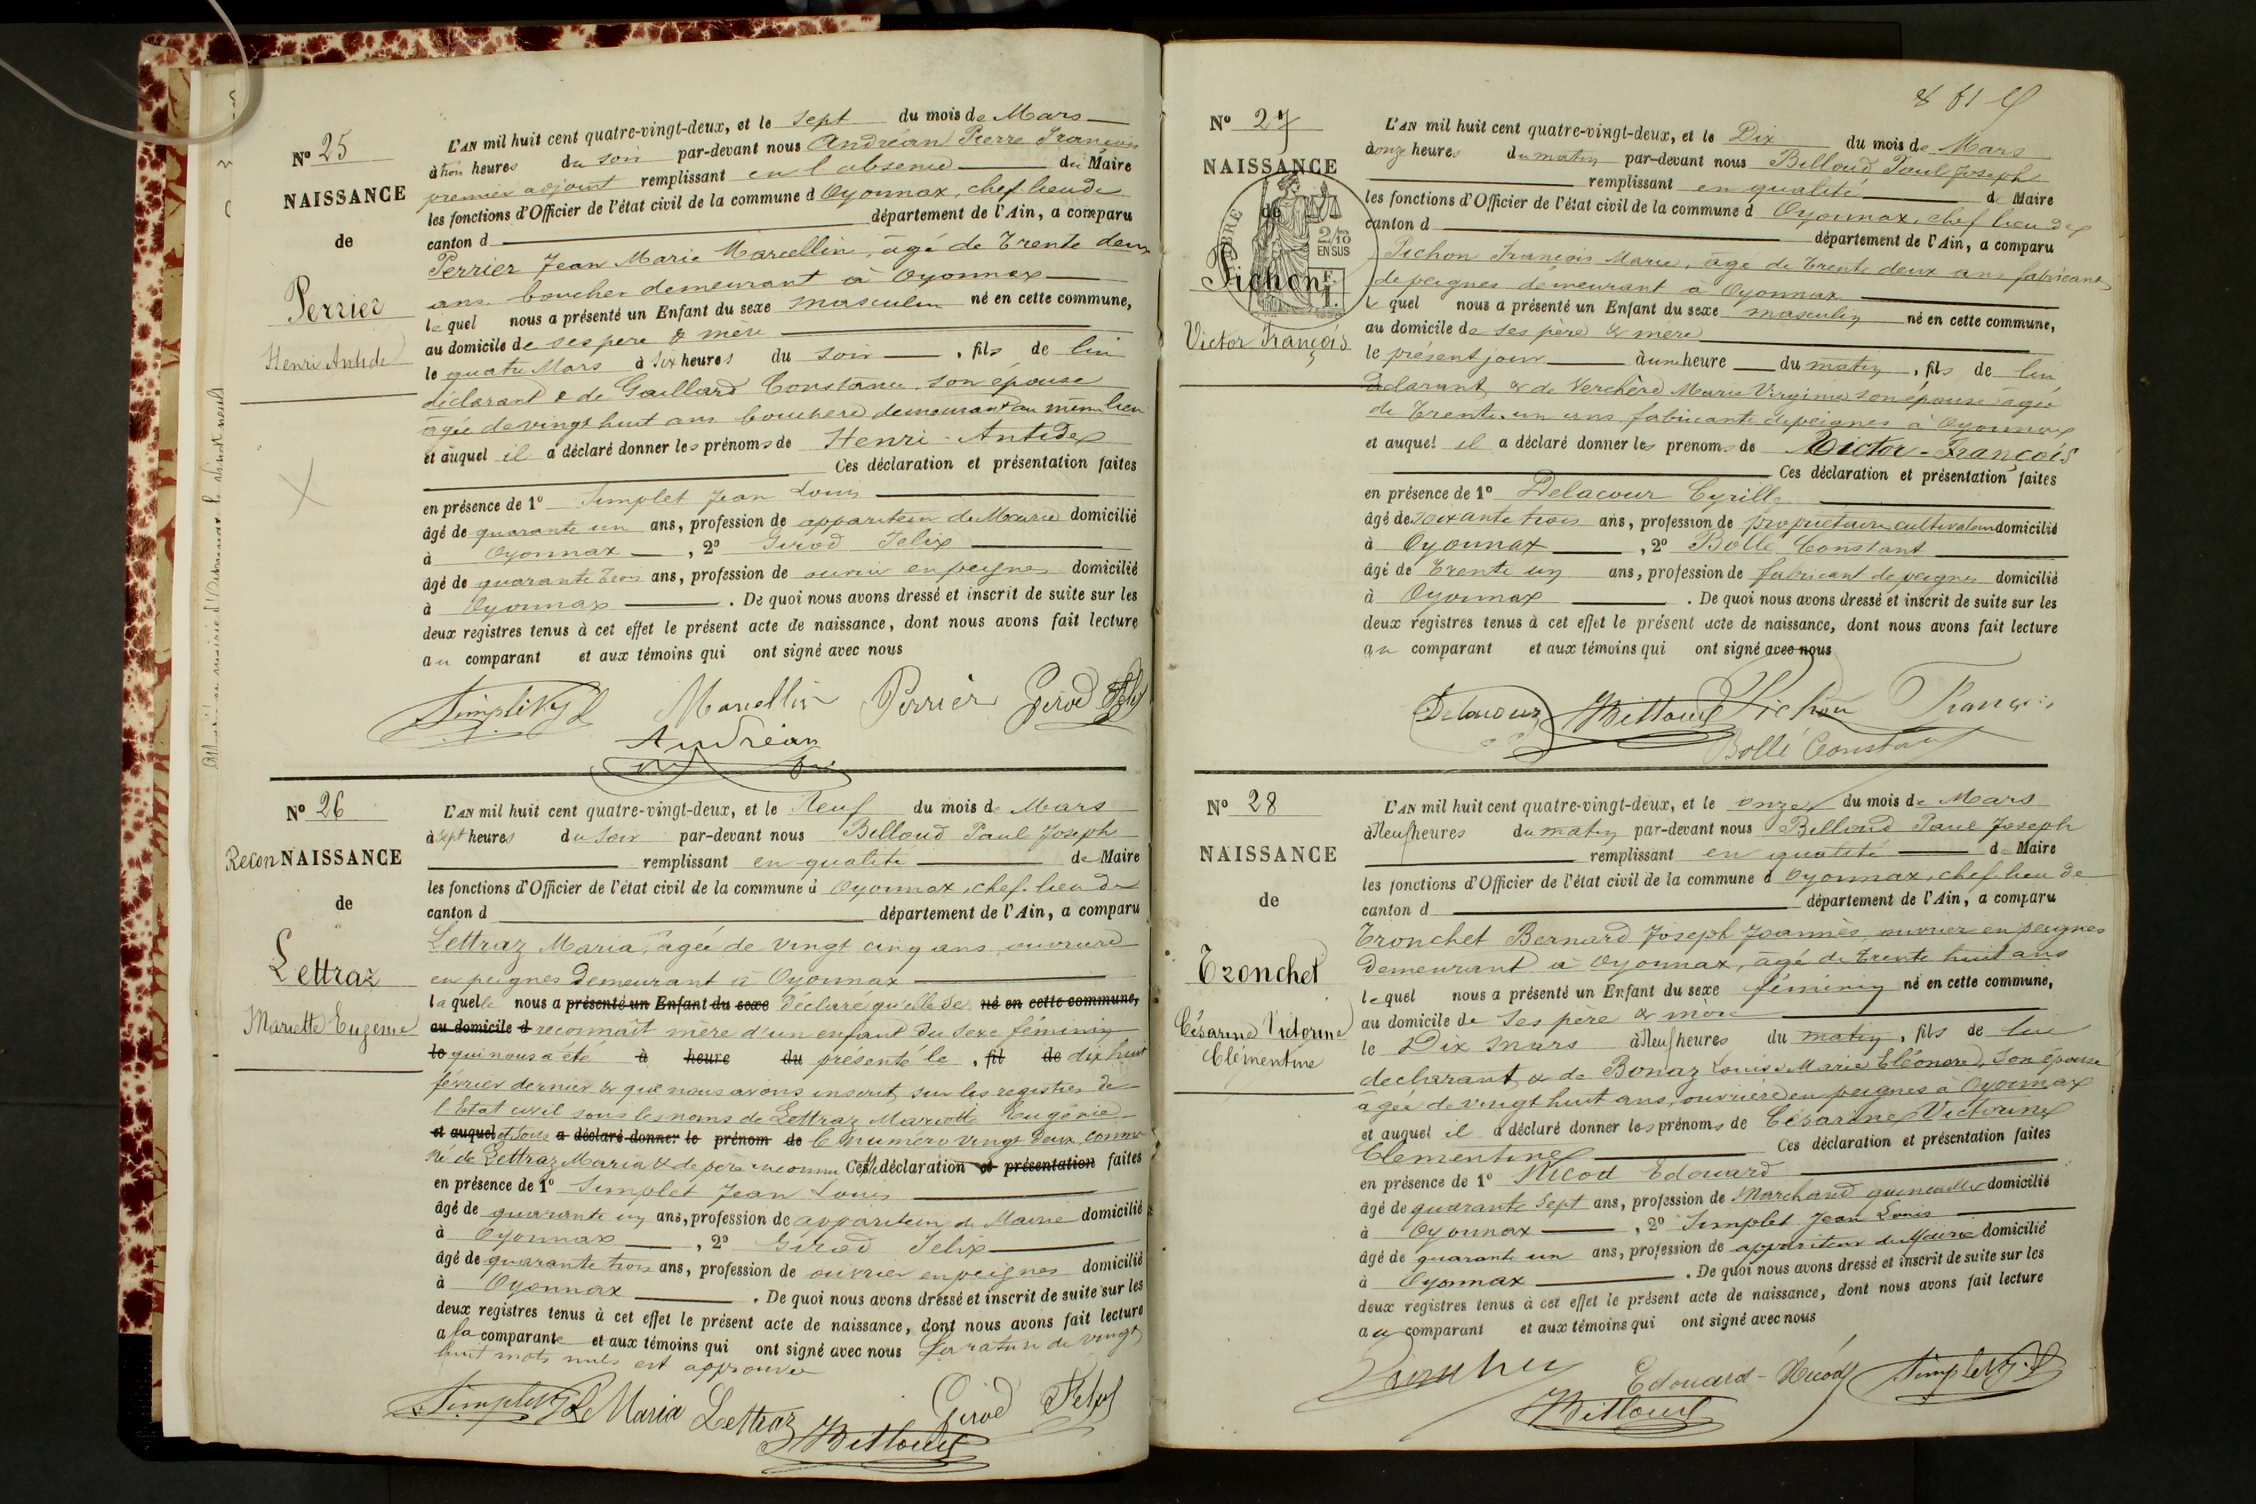 Nº 25
NAISSANCE
de
Perrier
Henri Antide
L'AN mil huit cent quatre-vingt-deux, et le sept du mois de Mars
à trois heures du soir par-devant nous Andréan Pierre François
premier adjoint remplissant en l'absence du Maire
les fonctions d'Officier de l'état civil de la commune d Oyonnax, chef lieu de
canton d département de l'Ain, a comparu
Perrier Jean Marie Marcellin, âgé de Trente deux
ans boucher demeurant à Oyonnax
le quel nous a présenté un Enfant du sexe masculin né en cette commune,
au domicile de ses père & mère
le quatre Mars à six heures du soir, fils de lui
déclarant & de Gaillard Constance, son épouse
agée de vingt huit ans bouchère demeurant au même lieu
et auquel il a déclaré donner les prénoms de Henri-Antide
Ces déclaration et présentation faites
en présence de 1º Simplet Jean Louis
âgé de quarante un ans, profession de appariteur de Mairie domicilié
à Oyonnax, 2º Girod Felix
âgé de quarante trois ans, profession de ouvrier en peignes domicilié
à Oyonnax. De quoi nous avons dressé et inscrit de suite sur les
deux registres tenus à cet effet le présent acte de naissance, dont nous avons fait lecture
au comparant et aux témoins qui ont signé avec nous
Simplet Marcellin Perrier Girod Felix
Andréan
Nº 26
Recon NAISSANCE
de
Lettraz
Mariette Eugénie
L'AN mil huit cent quatre-vingt-deux, et le Neuf du mois de Mars
à sept heures du soir par-devant nous Billoud Paul Joseph
remplissant en qualité de Maire
les fonctions d'Officier de l'état civil de la commune d Oyonnax, chef-lieu de
canton d département de l'Ain, a comparu
Lettraz Maria, agée de vingt cinq ans, ouvrière
en peignes demeurant à Oyonnax
laquelle nous a présenté un Enfant du sexe déclaré qu'elle se né en cette commune,
au domicile d reconnaît mère d'un enfant du sexe féminin
le qui nous a été à heure du présenté le, fil de dix huit
février dernier & que nous avons inscrit sur les registres de
l'Etat civil sous les noms de Lettraz Mariette Eugénie
et auquel et sous a déclaré donner le prénom de le numéro vingt deux, comme
né de Lettraz Maria & de père inconnu Cette déclaration et présentation faites
en présence de 1º Simplet Jean Louis
âgé de quarante un ans, profession de appariteur de Mairie domicilié
à Oyonnax, 2º Girod Felix
âgé de quarante trois ans, profession de ouvrier en peignes domicilié
à Oyonnax. De quoi nous avons dressé et inscrit de suite sur les
deux registres tenus à cet effet le présent acte de naissance, dont nous avons fait lecture
a la comparante et aux témoins qui ont signé avec nous La rature de vingt
huit mots nuls est approuvée
Simplet Maria Lettraz Girod Felix
Billoud
Nº 27
NAISSANCE
de
Pichon
Victor François
2/10
EN SUS
L'AN mil huit cent quatre-vingt-deux, et le Dix du mois de Mars
à onze heures du matin par-devant nous Billoud Paul Joseph
remplissant en qualité de Maire
les fonctions d'Officier de l'état civil de la commune d Oyonnax, chef lieu de
canton d département de l'Ain, a comparu
Pichon François Marie, âgé de Trente deux ans fabricant
de peignes demeurant à Oyonnax
le quel nous a présenté un Enfant du sexe masculin né en cette commune,
au domicile de ses père & mère
le présent jour à une heure du matin, fils de lui
déclarant & de Verchère Marie Virginie son épouse agée
de Trente-un ans fabricante de peignes à Oyonnax
et auquel il a déclaré donner les prénoms de Victor-François
Ces déclaration et présentation faites
en présence de 1º Delacour Cyrille
âgé de soixante trois ans, profession de propriétaire cultivateur domicilié
à Oyonnax, 2º Bollé Constant
âgé de Trente un ans, profession de fabricant de peignes domicilié
à Oyonnax. De quoi nous avons dressé et inscrit de suite sur les
deux registres tenus à cet effet le présent acte de naissance, dont nous avons fait lecture
au comparant et aux témoins qui ont signé avec nous
Delacour Billoud Pichon François
Bollé Constant
Nº 28
NAISSANCE
de
Tronchet
Césarine Victorine
Clémentine
L'AN mil huit cent quatre-vingt-deux, et le onze du mois de Mars
à Neuf heures du matin par-devant nous Billoud Paul Joseph
remplissant en qualité de Maire
les fonctions d'Officier de l'état civil de la commune d Oyonnax, chef-lieu de
canton d département de l'Ain, a comparu
Tronchet Bernard Joseph Joannès, ouvrier en peignes
demeurant à Oyonnax, âgé de Trente huit ans
le quel nous a présenté un Enfant du sexe féminin né en cette commune,
au domicile de ses père & mère
le Dix Mars à Neuf heures du matin, fils de lui
déclarant & de Bonaz Louise Marie Eléonore, son épouse
âgée de vingt huit ans, ouvrière en peignes à Oyonnax
et auquel il a déclaré donner les prénoms de Césarine Victorine
Clémentine Ces déclaration et présentation faites
en présence de 1º Nicod Edouard
âgé de quarante sept ans, profession de Marchand quincailler domicilié
à Oyonnax, 2º Simplet Jean Louis
âgé de quarante un ans, profession de appariteur de Mairie domicilié
à Oyonnax. De quoi nous avons dressé et inscrit de suite sur les
deux registres tenus à cet effet le présent acte de naissance, dont nous avons fait lecture
au comparant et aux témoins qui ont signé avec nous
Tronchet Edouard-Nicod Simplet
Billoud